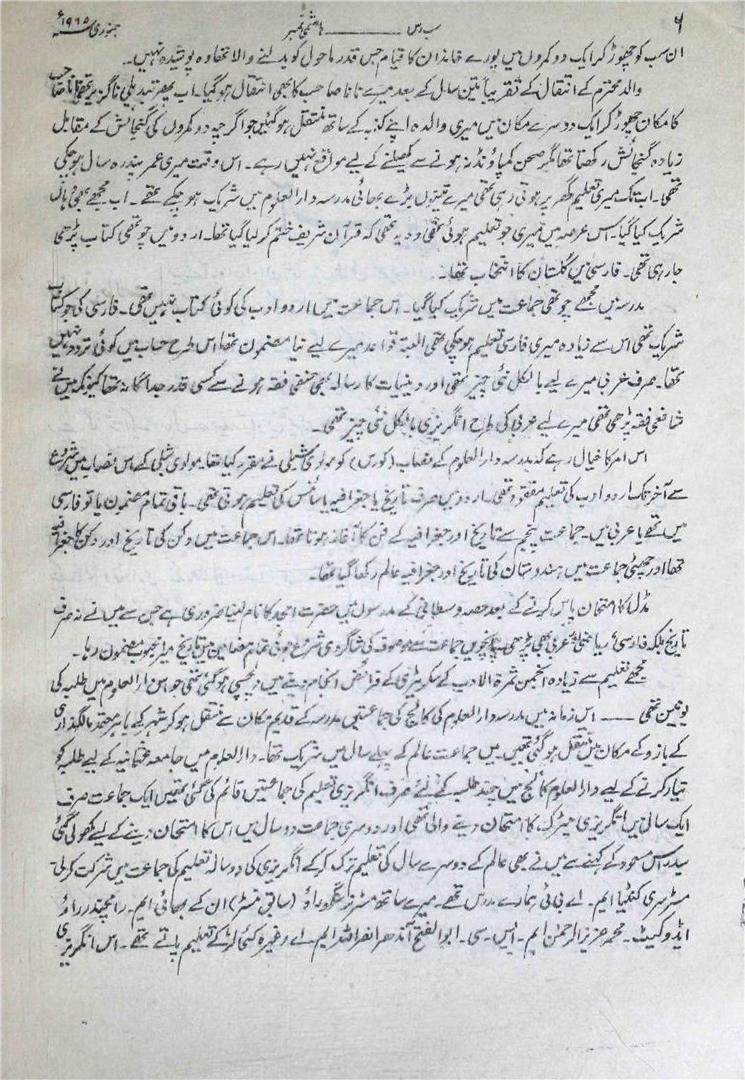 ۶ سب رس ــــــــ ہاشمی نمبر جنوری ۱۹۶۵ء
ان سب کو چھوڑ کر ایک دو کمروں میں پورے خاندان کا قیام جس قدر ماحول کو بدلنے والا تھا وہ پوشیدہ نہیں۔
والد محترم کے انتقال کے تقریباً تین سال کے بعد میرے نانا صاحب کا بھی انتقال ہو گیا۔ اب پھر تبدیلی ناگزیر تھی نانا صاحب
کا مکان چھوڑ کر ایک دوسرے مکان میں میری والدہ اپنے کنبہ کے ساتھ منتقل ہو گئیں جو اگرچہ دو کمروں کی گنجائش کے مقابل
زیادہ گنجائش رکھتا تھا مگر صحن کمپاؤنڈ نہ ہونے سے کھیلنے کے لیے مواقع نہیں رہے۔ اس وقت میری عمر پندرہ سال ہو چکی
تھی۔ اب تک میری تعلیم گھر پر ہوتی رہی تھی میرے تینوں بڑے بھائی مدرسہ دارالعلوم میں شریک ہو چکے تھے۔ اب مجھے بھی وہاں
شریک کیا گیا۔ اس عرصہ میں میری جو تعلیم ہوئی تھی وہ یہ تھی کہ قرآن شریف ختم کر لیا گیا تھا۔ اردو میں چوتھی کتاب پڑھی
جا رہی تھی۔ فارسی میں گلستان کا انتخاب تھا۔
مدرسہ میں مجھے چوتھی جماعت میں شریک کیا گیا۔ اس جماعت میں اردو ادب کی کوئی کتاب نہیں تھی۔ فارسی کی جو کتاب
شریک تھی اس سے زیادہ میری فارسی تعلیم ہو چکی تھی البتہ قواعد میرے لیے نیا مضمون تھا اس طرح حساب میں کوئی تردد نہیں
تھا۔ صرف عربی میرے لیے بالکل نئی چیز تھی اور دینیات کا رسالہ بھی حنفی فقہ ہونے سے کسی قدر جداگانہ تھا کیونکہ میں نے
شافعی فقہ پڑھی تھی میرے لیے عربی کی طرح انگریزی بالکل نئی چیز تھی۔
اس امر کا خیال رہے کہ مدرسہ دارالعلوم کے نصاب (کورس) کو مولوی شبلی نے مقرر کیا تھا۔ مولوی شبلی کے اس نصاب میں شروع
سے آخر تک اردو ادب کی تعلیم مفقود تھی۔ اردو میں صرف تاریخ یا جغرافیہ یا سائنس کی تعلیم ہوتی تھی۔ باقی تمام مضمون یا تو فارسی
میں تھے یا عربی میں۔ جماعت پنجم سے تاریخ اور جغرافیہ کے فن کا آغاز ہوتا تھا۔ اس جماعت میں دکن کی تاریخ اور دکن کا جغرافیہ
تھا اور چھٹی جماعت میں ہندوستان کی تاریخ اور جغرافیہ عالم رکھا گیا تھا۔
مڈل کا امتحان پاس کرنے کے بعد حصہ وسطانی کے مدرسوں میں حضرت امجد کا نام لینا ضروری ہے جن سے میں نے نہ صرف
تاریخ بلکہ فارسی، ریاضی اور عربی بھی پڑھی پانچویں جماعت سے موصوف کی شاگردی شروع ہوئی تمام مضامین میں تاریخ میرا محبوب مضمون رہا۔
مجھے تعلیم سے زیادہ انجمن ثمرۃ الادب کے سکریٹری کے فرائض انجام دینے میں دلچسپی ہو گئی تھی جو اس دارالعلوم میں طلبہ کی
یونین تھی ــــ اس زمانہ میں مدرسہ دارالعلوم کی کالج کی جماعتیں مدرسہ کے قدیم مکان سے منتقل ہو کر شہر کے باہر معتمد مالگذاری
کے بازو کے مکان میں منتقل ہو گئی تھیں۔ میں جماعت عالم کے پہلے سال میں شریک تھا۔ دارالعلوم میں جامعہ عثمانیہ کے لیے طلبہ کو
تیار کرنے کے لیے دارالعلوم کالج میں چند طلبہ کے لئے صرف انگریزی تعلیم کی جماعتیں قائم کی گئی تھیں ایک جماعت صرف
ایک سال میں انگریزی میٹرک کا امتحان دینے والی تھی اور دوسری جماعت دو سال میں اس کا امتحان دینے کے لیے کھولی گئی
سید راس مسعود کے کہنے سے میں نے بھی عالم کے دوسرے سال کی تعلیم ترک کر کے انگریزی کی دو سالہ تعلیم کی جماعت میں شرکت کر لی
مسٹر سری کنٹیا ایم۔ اے بی ٹی ہمارے مدرس تھے۔ میرے ساتھ مسٹر راؤ (سابق منسٹر) ان کے بھائی ایم۔ رامچندر راؤ
ایڈوکیٹ۔ محمد عزیز الرحمٰن ایم۔ ایس۔ سی۔ ابوالفتح نصر اللہ ایم اے وغیرہ کئی لڑکے تعلیم پاتے تھے۔ اس انگریزی